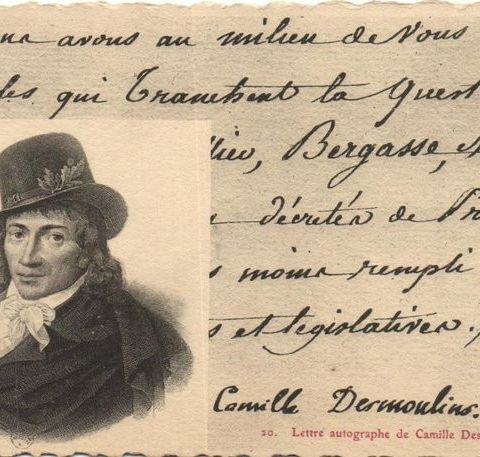 avons au milieu de vous
qui tranchent la quest
Bergasse, et
décrétés de Pr
moins rempli
s et législatives.
Camille Desmoulins.
20. Lettre autographe de Camille Des